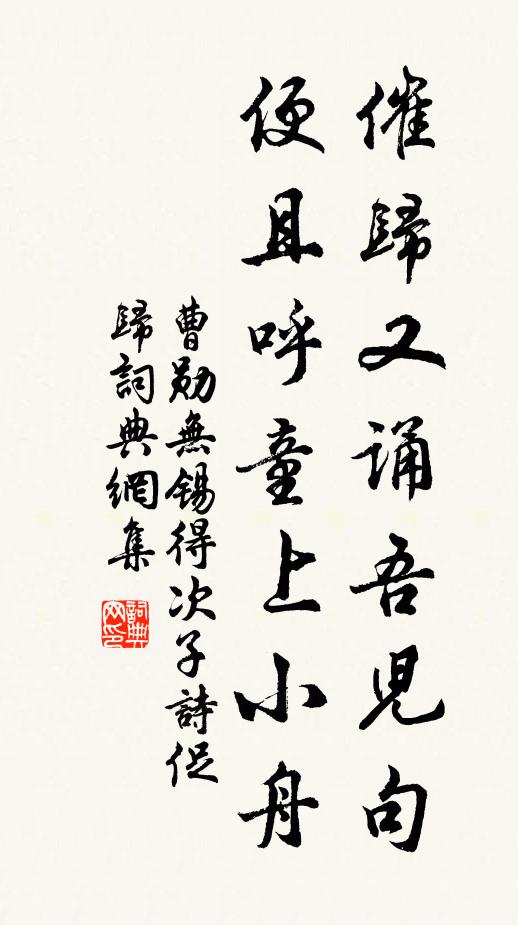 催歸又誦吾兒句
便且呼童上小舟
曹勛無錫得次子詩促
歸詞典網集
詞典网印